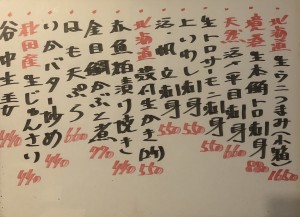 北海道 生うにつまみ(小箱) 1650
岩造 生本鮪トロ刺身 880
天然 活〆平目刺身 660
生トロサーモン刺身 550
上いわし刺身 550
活・帆立刺身 550
北海道 殻付生かき(1ヶ) 550
本魚粕漬り焼き 440
金目鯛かぶと煮 770
はも天ぷら 660
いかバター炒め 440
秋田産 生じゅんさい 440
谷中生姜 440